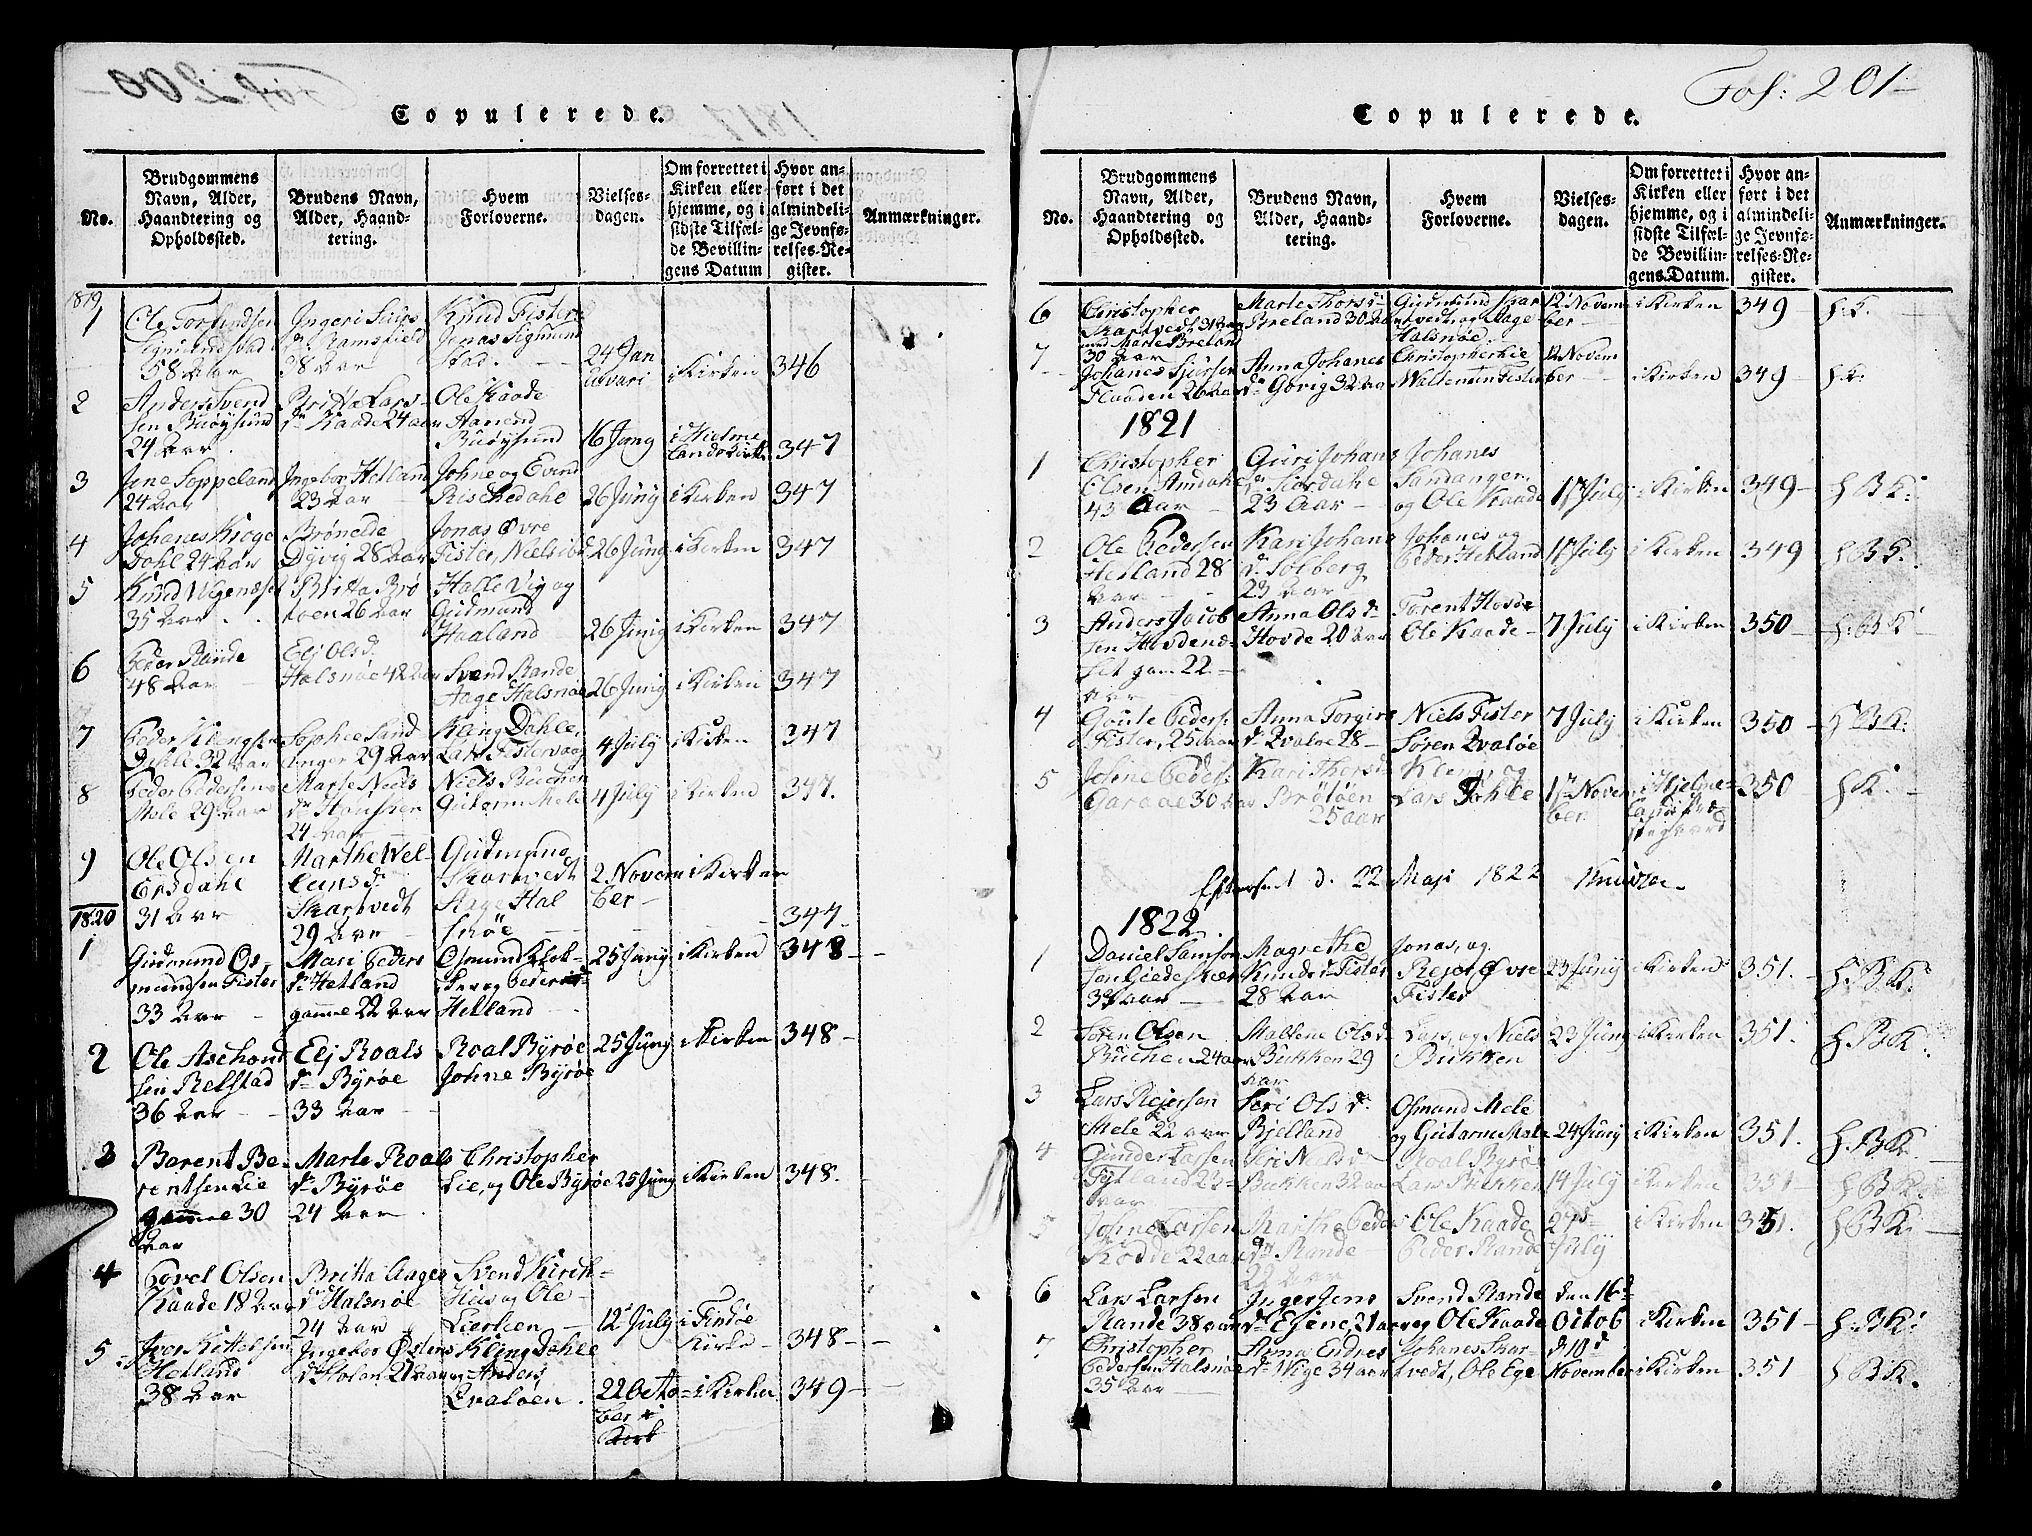 Copulerede.
No.
Brudgommens
Navn, Alder,
Haandtering og
Opholdssted.
Brudens Navn,
Alder, Haand-
tering.
Hvem
Forloverne.
Vielses-
dagen.
Om forrettet i
Kirken eller
hjemme, og i
sidste Tilfæl-
de Bevillin-
gens Datum
Hvor an-
ført i det
almindeli-
ge Jevnfø-
relses-Re-
gister.
Anmærkninger.
1819
1
58 Aar
38 Aar
Knud Fister
Jonas Sigmund
stad.
24 Jan
uvari
i Kirken
346
2
Anders Svend
sen Buøysund
24 Aar
Britta Lars-
dr Kaade 24 aar
Ole Kaade
Aanend
Buøysund
16 Juny
i Hielme
347
3
Jone Soppeland
24 Aar
Ingebor Hetland
23 Aar
Johne og Evend
Riskedahl
26 Juny
i Kirken
347
4
Johanes Kroge
Dahl 24 Aar
Brønelde
Dyvig 28 Aar
Jonas Øvre
Fister, Niels
26 Juny
i Kirken
347
5
35 Aar
Britta Brø
toen 26 Aar
Halle Vig og
Gudmund
Haaland
26 Juny
i Kirken
347
6
Peder Rande
48 Aar
Elj Olsd.
Halsnøe 42 Aar
Svend Rande
Aage Halsnøe
26 Juny
i Kirken
347
7
32 Aar
Sophie Sand
anger 29 Aar
Kling Dahle,
Lars Fistervaag
4 July
i Kirken
347
8
Peder Pedersen
Mele 29 Aar
Marte Niels
24 Aar
Niels Buchen
Gutorm Mele
4 July
i Kirken
347.
9
Ole Olsen
Ersdahl
31 Aar
Marthe Wel-
lums d.
Skartvedt
29 Aar
Gudmund
Skartvedt
Aage Hal
snöe
2 Novem
ber
i Kirken
347
1820
1
Gudmund Os-
mundsen Fister
33 Aar
Mari Peders
dr Hetland
gamme 22 Aar
Osmund Klok-
ker og Peder
Hetland
25 Juny
i Kirken
348
2
Ole Aschond
sen Relstad
36 Aar
Elj Roals
dr Byrøe
33 Aar
Roal Byrøe
Johne Byrøe
25 Juny
i Kirken
348
3
Barent Be-
rentsen Lie
gamme 30
Aar
Marte Roals
dr Byrøe
24 Aar
Christopher
Lie, og Ole Byrøe
25 Juny
i Kirken
348.
4
Povel Olsen
Kaade 18 Aar
Britta Aages
dr Halsnøe
24 Aar
Svend Kirck-
Hus og Ole
Lieklien
12 July
i Findøe
Kirke
348
5
Iver Kittelsen
Hetland
38 Aar
Ingebor Østens
dr Holen 21 Aar
Kling Dahle
og Anders
Qvaløen
22 Octo
ber i
Kirk
i Kirken
349
Fol: 201
Copulerede.
No.
Brudgommens
Navn, Alder,
Haandtering og
Opholdssted.
Brudens Navn,
Alder, Haand-
tering.
Hvem
Forloverne.
Vielses-
dagen.
Om forrettet i
Kirken eller
hjemme, og i
sidste Tilfæl-
de Bevillin-
gens Datum.
Hvor an-
ført i det
almindeli-
ge Jevnfø-
relses-Re-
gister.
Anmærkninger.
6
Christopher
Skartvedt 31 Aar
und Marte Breland
30 Aar
Marte Thors d
Breland 30 Aar
Gudmund Skar
tvedt og Aage
Halsnøe
12 Novem
ber
i Kirken
349
H.K.
7
Johanes Siursen
Flaaden 26 Aar
Anna Johanes
dr Gørig 32 Aar
Christopher Lie
Waltentin Fister
12 Novem
ber
i Kirken
349
H.K.
1821
1
Christopher
Olsen Aadahl
43 Aar
Guri Johans
23 Aar
Johanes
Sandanger
og Ole Kaade
1 July
i Kirken
349
H BK.
2
Ole Pedersen
Hetland 28
Aar
Kari Johans
dr Solberg
23 Aar
Johanes og
Peder Hetland
1 July
i Kirken
349
H.BK.
3
Anders Jacob
sen Hovdenæ-
set gam 22
Aar
Anna Ols d
Hovde 20 Aar
Torent Hovde
Ole Kaade
7 July
i Kirken
350
H.BK
4
Goute Peders:
Fister, 25 Aar
Anna Torgirs
dr Qvaløe 28
Niels Fister
Søren Qvaløe
7 July
i Kirken
350
H BK.
5
Johne Peders:
Garaae 30 Aar
Kari Thors d
Brøtøen
25 aar
Kleng og
Lars Dahle
Novem
ber
i Hjelme-
350
H K.
Efterseet d. 22 Maji 1822 Knudzen
1822
1
Daniel Samson
33 Aar
Magrethe
Knuds d Fister
28 Aar
Jonas, og
Rejer Øvre
Fister
23 Juny
i Kirken
351.
H.BK.
2
Søren Olsen
Buchen 24 aar
Mallene Ols d
Bukken 29
aar
Lars, og Niels
Bukken
23 Juny
i Kirken
351.
H.BK.
3
Lars Rejersen
Mele 22 aar
Seri Ols d.
Bjelland
Osmund Mele
og Gutorm Mele
24 Juny
i Kirken
351.
H.BK.
4
Gunder Larsen
Tytland 23
Aar
Siri Niels d
Bukken 32 aar
Roal Byrøe
Lars Bukken
14 July
i Kirken
351
H.BK.
5
Johne Larsen
Kodde 22 aar
Marthe Peders
dr Rande
22 Aar
Ole Kaade
Peder Rande
July
i Kirken
351.
H BK.
6
Lars Larsen
Rande 38 aar
Inger Jens
Svend Rande
og Ole Kaade
den 16
Octob
i Kirken
351
H.BK.
7
Christopher
Pedersen Halsnøe
35 Aar
Anna Endres
dr Wige 34 aar
Johanes Skar-
tvedt, Ole Ege
d 10 d
November
i Kirken
351
H BK.